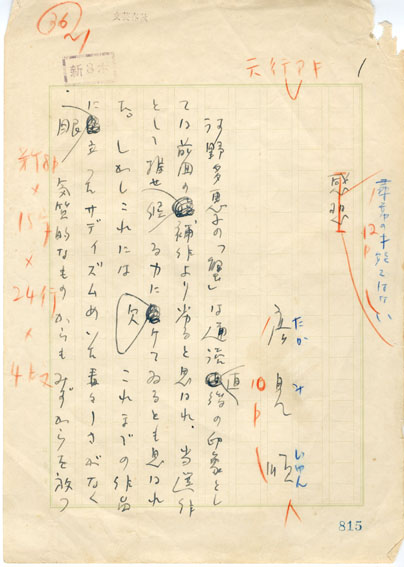 36
新8ホ
1
天行アキ
尋常の才能ではない
12P
感想
高見順
たかみじゅん
10P
河野多惠子の「蟹」は通読直後の印象とし
ては前回の補作より劣ると思はれ、当選作
として推せる力に欠ケてゐるとも思はれ
た。しかしこれには これまでの作品
に眼立つたサデイズムめいた毒々しさがなく
気質的なものからもみずからを放つ
15字
×
24行
×
815